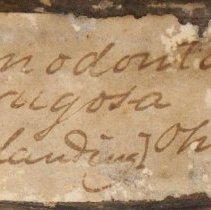 nodonta
rugosa
landing] Oh